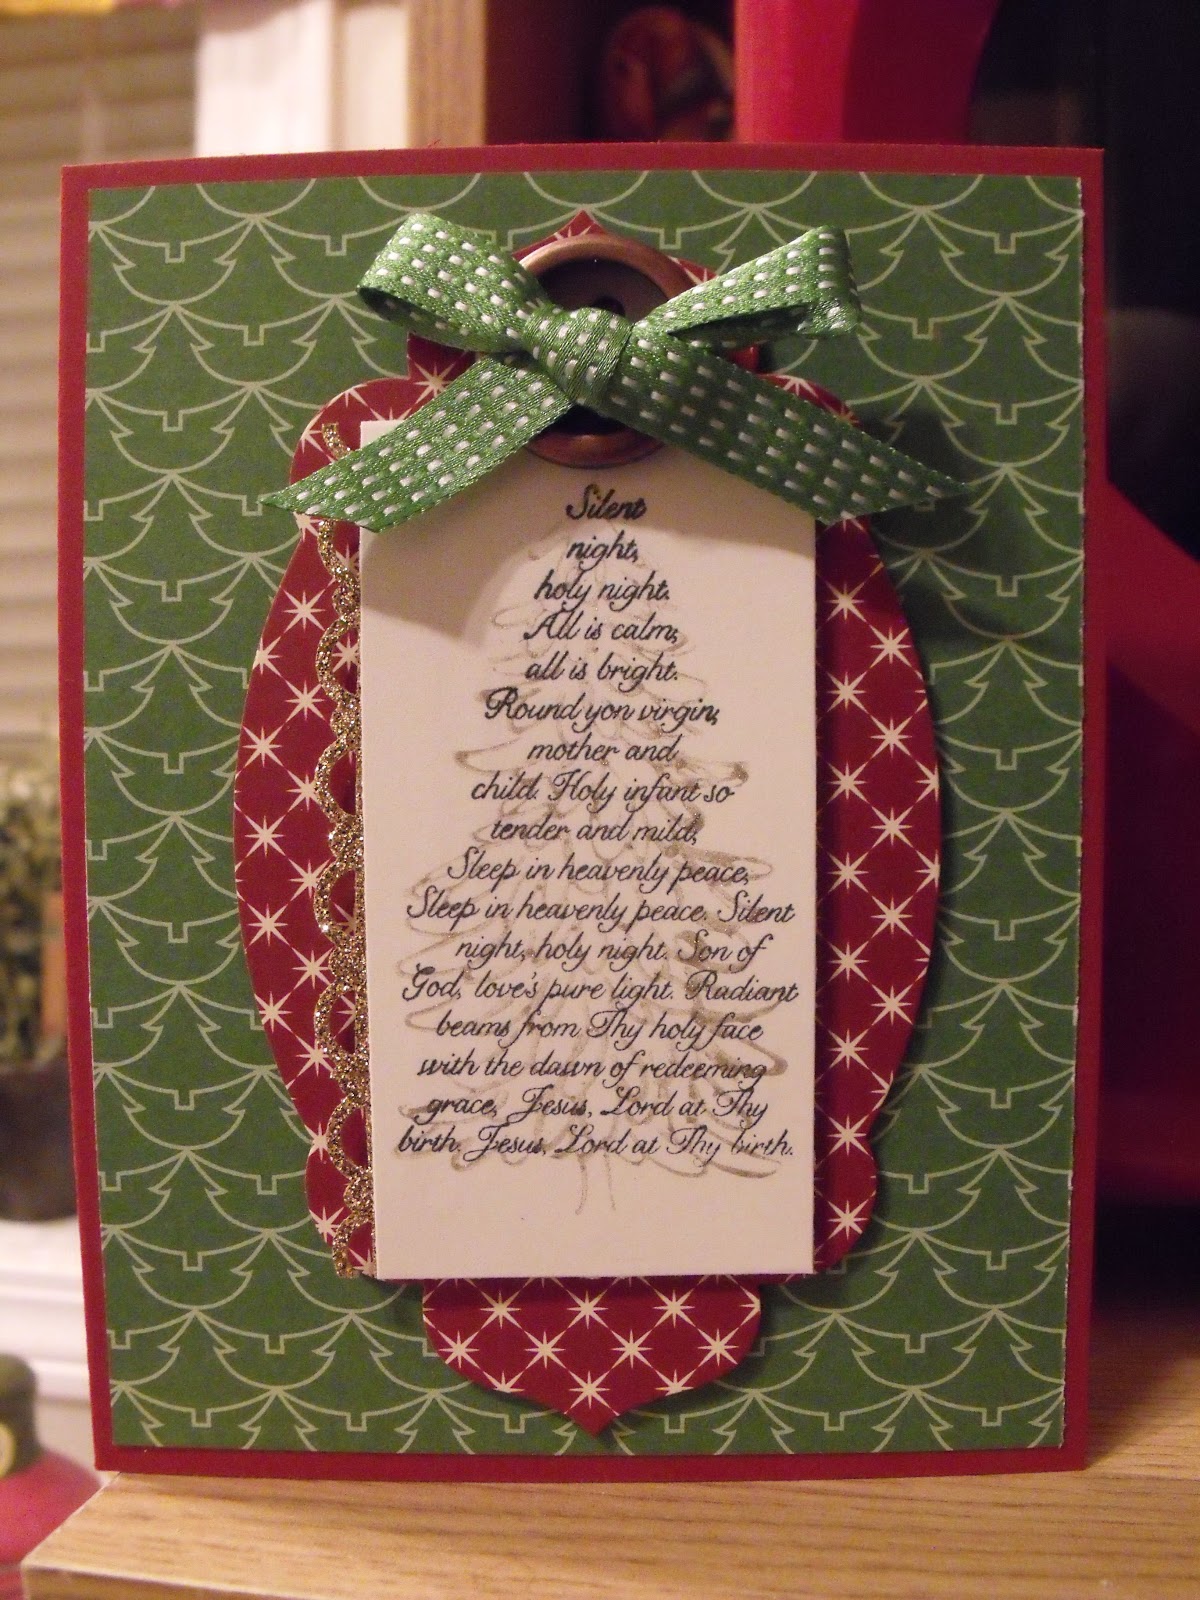 Silent
night,
holy night.
All is calm,
all is bright.
Round yon virgin,
mother and
child. Holy infant so
tender and mild,
Sleep in heavenly peace,
Sleep in heavenly peace. Silent
night, holy night. Son of
God, love's pure light. Radiant
beams from Thy holy face
with the dawn of redeeming
grace, Jesus, Lord at Thy
birth. Jesus, Lord at Thy birth.